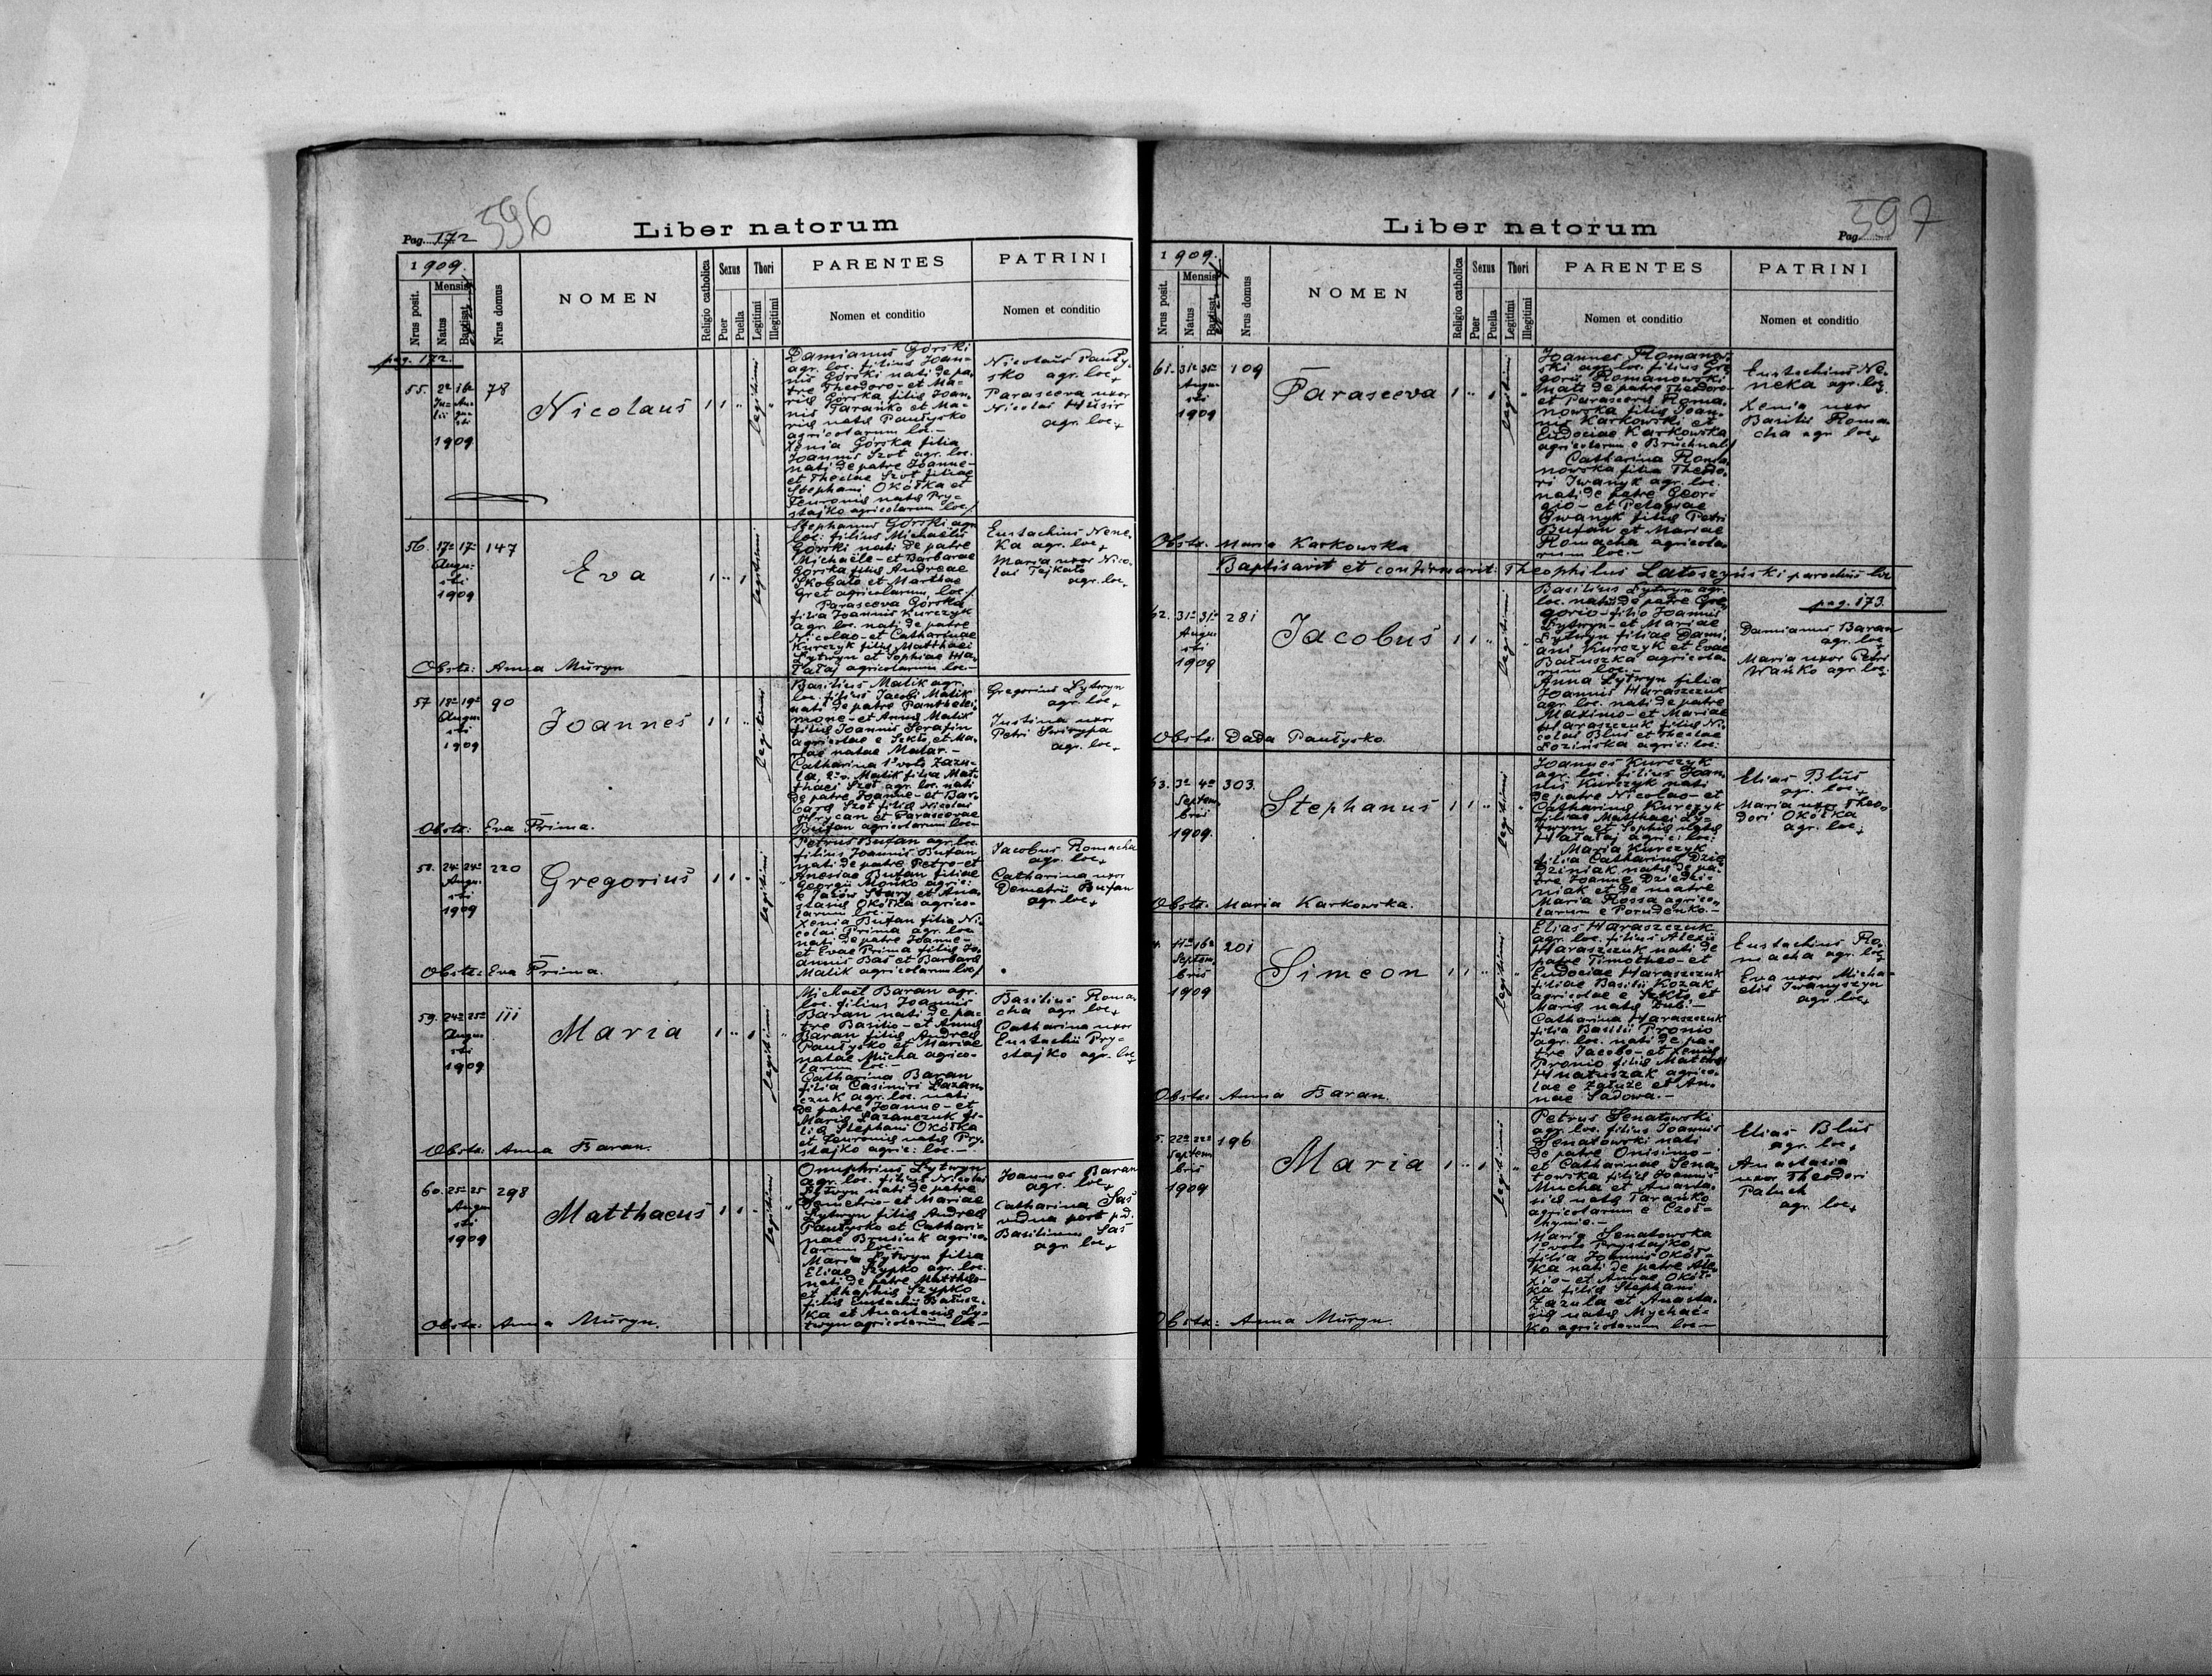 Pag. 172
596
Liber natorum
1909.
Nrus posit.
Mensis
Natus
Baptisat.
Nrus domus
NOMEN
Religio catholica
Sexus
Puer
Puella
Thori
Legitimi
Illegitimi
PARENTES
Nomen et conditio
PATRINI
Nomen et conditio
pag. 172.
55.
78
1909
Nicolaus
legitimi
Damianus Górski
agr. loc. filius Joan-
nis Górski nati de pa-
tre Theodoro - et Ma-
riæ Górska filiæ Joan-
nis Taranko et Ma-
riæ natæ Pautysko
agricolarum loc. -
Xenia Górska filia
Joannis Szot agr. loc.
nati de patre Joanne -
et Theclae Szot filiae
Stephani Okółka et
natæ Pry-
stajko agricolarum loc.
Nicolaus Pauty-
sko agr. loc.
Parasceva uxor
Nicolai Husir
agr. loc.
56.
17 17
147
Augu-
sti
1909
Eva
legitimi
Stephanus Górski agr.
loc. filius Michaëlis
Górski nati de patre
Michaële - et Barbarae
Górska filiæ Andreae
Skobało et Marthae
Gret agricolarum loc.
Parasceva Górska
filia Joannis Kurczyk
agr. loc. nati de patre
Nicolao - et Catharinae
Kurczyk filiæ Matthaei
Lytwyn et Sophiae Ha-
łałaj agricolarum loc. -
Eustachius Nene-
ka agr. loc.
Maria uxor Nico-
lai Tejkało
agr. loc.
Obstr: Anna Muryn
57
18 19
90
Augu-
sti
1909
Joannes
legitimi
Basilius Malik agr.
loc. filius Jacobi Malik
nati de patre Panthelei-
mone - et Annæ Malik
filiæ Joannis Serafin
agricolae e Szkło et Ma-
riae natae Malar. -
Catharina 1º voto Zazu-
la, 2º v. Malik filia Mat-
thaei Szot agr. loc. nati
de patre Joanne - et Bar-
baræ Szot filiæ Nicolai
Hrycan et Parascevae
Bufan agricolarum loc. -
Gregorius Lytwyn
agr. loc.
Justina uxor
Petri Swirypa
agr. loc.
Obstr: Eva Prima.
58.
24 24
220
Augu-
sti
1909
Gregorius
legitimi
Petrus Bufan agr. loc.
filius Joannis Bufan
nati de patre Petro - et
Anesiae Bufan filiae
Georgii Mońko agric:
e Jazów Stary et Ana-
stasiæ Okółka agrico-
larum loc. -
Xenia Bufan filia Ni-
colai Prima agr. loc.
nati de patre Joanne -
et Evae Prima filiæ Jo-
annis Bas et Barbaræ
Malik agricolarum loc.
Jacobus Romacha
agr. loc.
Catharina uxor
Demetrii Bufan
agr. loc.
Obstr: Eva Prima.
59.
24 25
111
Augu-
sti
1909
Maria
legitimi
Michaël Baran agr.
loc. filius Joannis
Baran nati de pa-
tre Basilio - et Annæ
Baran filiæ Andreæ
Pautysko et Mariae
natae Mucha agrico-
larum loc. -
Catharina Baran
filia Casimiri Łazan-
czuk agr. loc. nati
de patre Joanne - et
Mariæ Łazanczuk fi-
liæ Stephani Okółka
et Feuroniæ natæ Pry-
stajko agric: loc. -
Basilius Roma-
cha agr. loc.
Catharina uxor
Eustachii Pry-
stajko agr. loc.
Obstr: Anna Baran.
60.
25 25
298
Augu-
sti
1909
Matthaeus
legitimi
Onuphrius Lytwyn
agr. loc. filius Nicolai
Lytwyn nati de patre
Demetrio - et Mariae
Lytwyn filiæ Andreæ
Pautysko et Cathari-
nae Brusiuk agrico-
larum loc. -
Maria Lytwyn filia
Eliae Szypko agr. loc.
nati de patre Matthæo -
et Ahaphiæ Szypko
filiæ Eustachii Bałusz-
ka et Anastasiæ Ly-
twyn agricolarum loc. -
Joannes Baran
agr. loc.
Catharina Sas
vidua post p.d.
Basilium Sas
agr. loc.
Obstr: Anna Muryn.
597
Liber natorum
Pag.
1909.
Nrus posit.
Mensis
Natus
Baptisat.
Nrus domus
NOMEN
Religio catholica
Sexus
Puer
Puella
Thori
Legitimi
Illegitimi
PARENTES
Nomen et conditio
PATRINI
Nomen et conditio
61.
31 31
109
Augu-
sti
1909
Parasceva
legitimi
Joannes Romanow-
ski agr. loc. filius Gre-
gorii Romanowski
nati de patre Theodoro -
et Parascevæ Roma-
nowska filiæ Joan-
nis Karkowski et
Eudociae Karkowska
agricolarum e Bruchnal
Catharina Roma-
nowska filia Theodo-
ri Iwanyk agr. loc.
nati de patre Geor-
gio - et Pelagiae
Iwanyk filiæ Petri
Bufan et Mariae
Romacha agricola-
rum loc. -
Eustachius Ne-
neka agr. loc.
Xenia uxor
Basilii Roma-
cha agr. loc.
Obstr. Maria Karkowska
Baptisavit et confirmavit: Theophilus Latoszyński parochus loc.
pag. 173.
62.
31 31
281
Augu-
sti
1909
Jacobus
legitimi
Basilius Lytwyn agr.
loc. nati de patre Gre-
gorio - filio Joannis
Lytwyn - et Mariae
Lytwyn filiae Dami-
ani Kurczyk et Evae
Bałuszka agricola-
rum loc. -
Anna Lytwyn filia
Joannis Haraszczuk
agr. loc. nati de patre
Maximo - et Mariae
Haraszczuk filiæ Ni-
colai Blus et Theclae
Łozińska agric: loc:
Damianus Baran
agr. loc.
Maria uxor Petri
Wańko agr. loc.
Obstr. Dada Pautysko.
63.
3 4
303.
Septem-
bris
1909.
Stephanus
legitimi
Joannes Kurczyk
agr. loc. filius Joan-
nis Kurczyk nati
de patre Nicolao - et
Catharinæ Kurczyk
filiae Matthaei Ly-
twyn et Sophiæ natæ
Hałałaj agric: loc:
Maria Kurczyk
filia Catharinæ Dzie-
dziniak natæ de pa-
tre Joanne Dziedzi-
niak et de matre
Maria Rossa agrico-
larum e Porudenko. -
Elias Blus
agr. loc.
Maria uxor Theo-
dori Okółka
agr. loc.
Obstr. Maria Karkowska.
11 16
201
Septem-
bris
1909
Simeon
legitimi
Elias Haraszczuk
agr. loc. filius Alexii
Haraszczuk nati de
patre Timotheo - et
Eudociae Haraszczuk
filiae Basilii Kozak
agricolae e Szkło et
Mariæ natæ Dubi -
Catharina Haraszczuk
filia Basilii Pronio
agr. loc. nati de pa-
tre Jacobo - et Xeniæ
Pronio filiæ Matthæi
Hnatuszak agrico-
lae e Załuże et An-
nae Sadowa. -
Eustachius Ro-
macha agr. loc.
Eva uxor Micha-
elis Iwanyszyn
agr. loc.
Obstr: Anna Baran.
22 22
196
Septem-
bris
1909
Maria
legitimi
Petrus Senatowski
agr. loc. filius Joannis
Senatowski nati
de patre Onisimo -
et Catharinae Sena-
towska filiæ Joannis
Mucha et Anasta-
siæ natæ Taranko
agricolarum e Czoł-
hynie. -
Maria Senatowska
1º voto Prystajko
filia Joannis Okół-
ka nati de patre Ale-
xio - et Annae Okół-
ka filiæ Stephani
Zazula et Anasta-
siæ natæ Mychać-
ko agricolarum loc. -
Elias Blus
agr. loc.
Anastasia
uxor Theodori
Paluch
agr. loc.
Obstr: Anna Muryn.